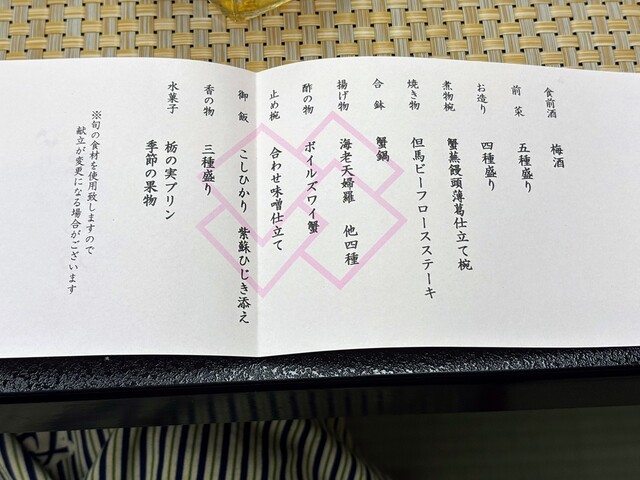 食前酒 梅酒
前菜 五種盛り
お造り 四種盛り
煮物椀 蟹蒸饅頭薄葛仕立て椀
焼き物 但馬ビーフロースステーキ
合鉢 蟹鍋
揚げ物 海老天婦羅 他四種
酢の物 ボイルズワイ蟹
止め椀 合わせ味噌仕立て
御飯 こしひかり 紫蘇ひじき添え
香の物 三種盛り
水菓子 栃の実プリン
季節の果物
※旬の食材を使用致しますので
献立が変更になる場合がございます